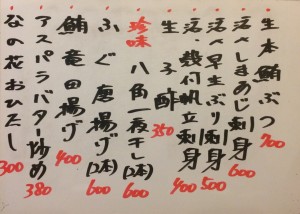 生本鮪ぶつ 700
活〆しまあじ刺身 600
活〆早生ぶり刺身 500
活〆殻付帆立刺身 400
生子酢 350
珍味 八角一夜干し(2本) 600
ふぐ唐揚げ(2本) 600
鮪竜田揚げ 400
アスパラバター炒め 380
なの花おひたし 300